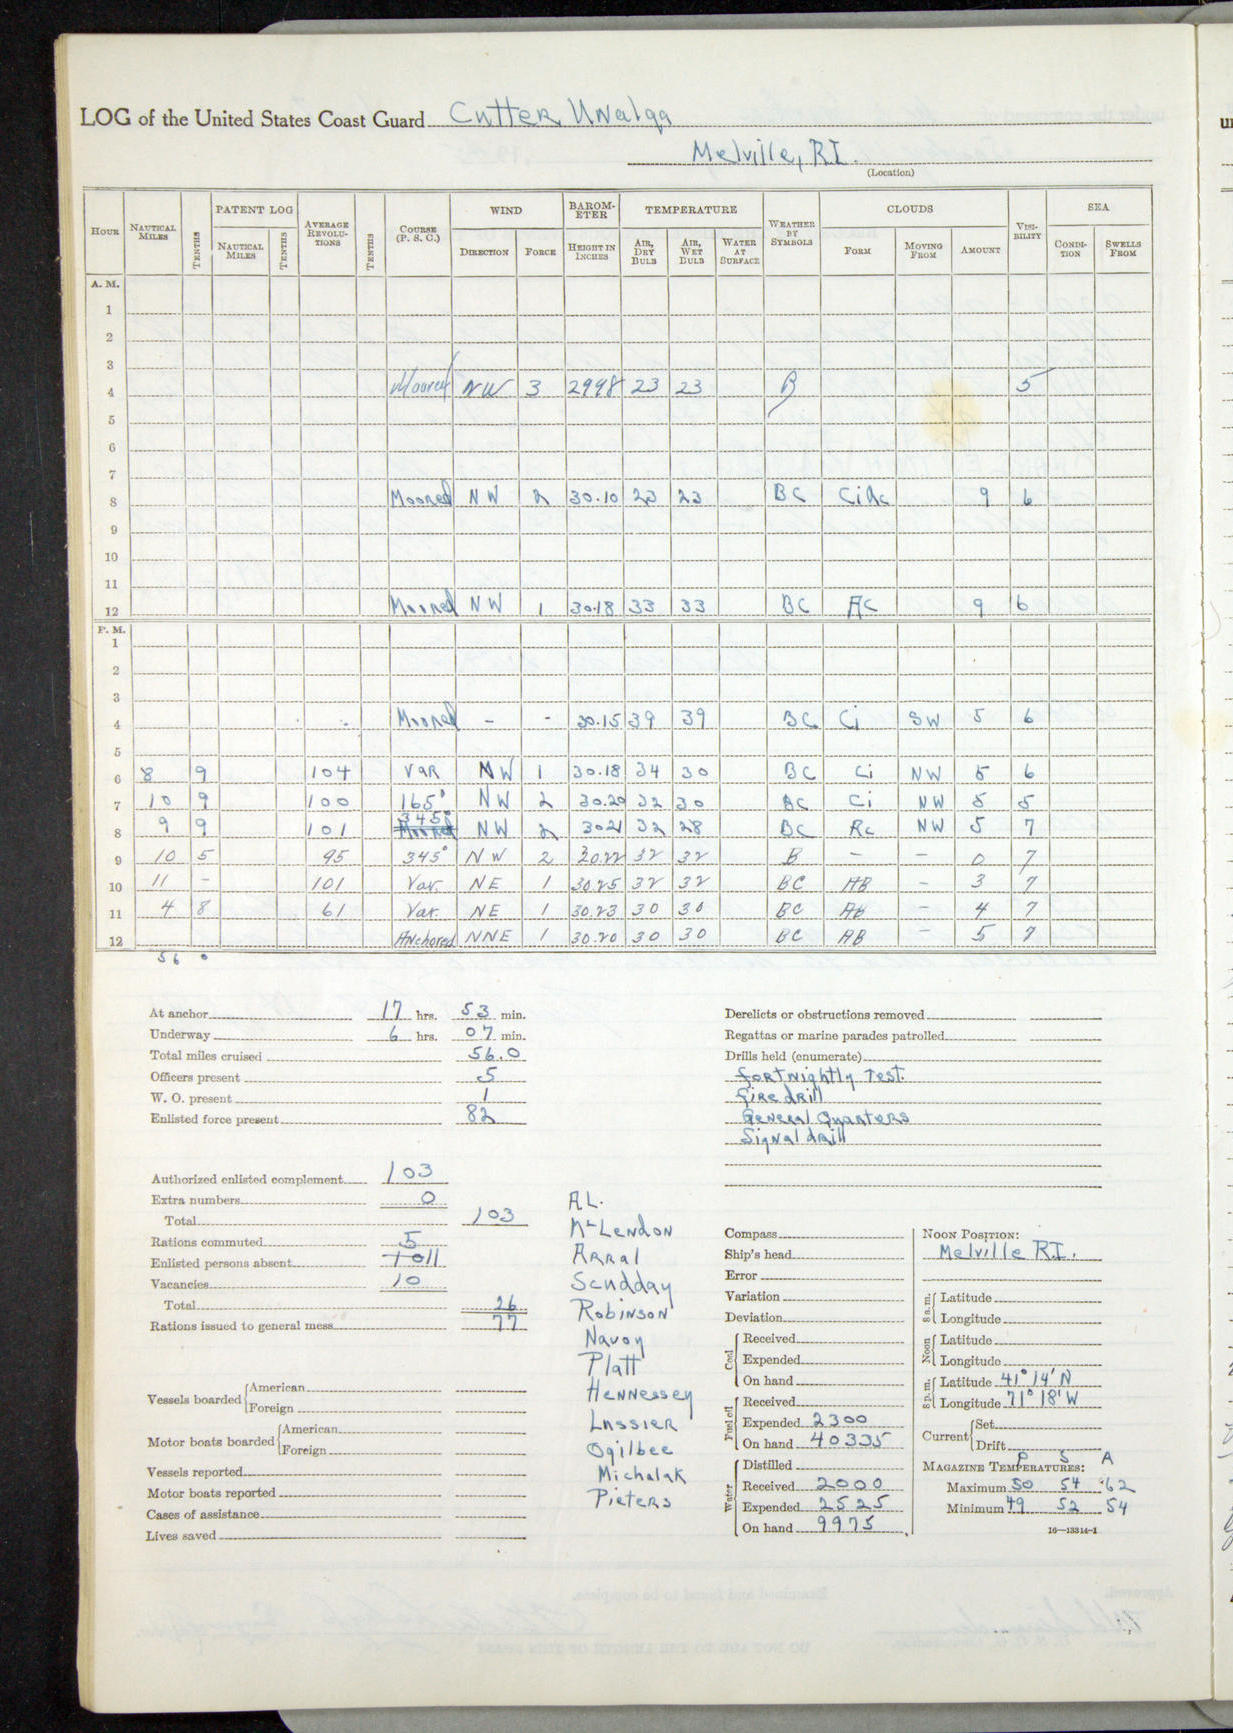 LOG of the United States Coast Guard Cutter Unalga
Melville, R.I.
(Location)
HOUR NAUTICAL MILES TENTHS PATENT LOG NAUTICAL MILES TENTHS AVERAGE REVOLUTIONS TENTHS COURSE (P. S. C.) WIND DIRECTION FORCE BAROMETER HEIGHT IN INCHES TEMPERATURE AIR, DRY BULB AIR, WET BULB WATER AT SURFACE WEATHER BY SYMBOLS CLOUDS FORM MOVING FROM AMOUNT VISIBILITY SEA CONDITION SWELLS FROM
A. M.
1
2
3
4 Moored NW 3 2998 23 23 B 5
5
6
7
8 Moored NW 2 30.10 23 23 BC CiAc 9 6
9
10
11
12 Moored NW 1 30.18 33 33 BC AC 9 6
P. M.
1
2
3
4 Moored - - 30.15 39 39 BC Ci SW 5 6
5
6 8 9 104 Var NW 1 30.18 34 30 BC Ci NW 5 6
7 10 9 100 165° NW 2 30.20 32 30 BC Ci NW 5 5
8 9 9 101 345° Moored NW 2 3021 32 28 BC Ac NW 5 7
9 10 5 95 345° NW 2 30.22 32 32 B - - 0 7
10 11 - 101 Var. NE 1 30.25 32 32 BC AB - 3 7
11 4 8 61 Var. NE 1 30.23 30 30 BC Ab - 4 7
12 Anchored NNE 1 30.20 30 30 BC AB - 5 7
56 0
At anchor 17 hrs. 53 min.
Underway 6 hrs. 07 min.
Total miles cruised 56.0
Officers present 5
W. O. present 1
Enlisted force present 82
Derelicts or obstructions removed
Regattas or marine parades patrolled
Drills held (enumerate)
Fortnightly Test.
Fire drill
General Quarters
Signal drill
Authorized enlisted complement 103
Extra numbers 0
Total 103
Rations commuted 5
Enlisted persons absent 11
Vacancies 10
Total 26
Rations issued to general mess 77
Vessels boarded American
Foreign
Motor boats boarded American
Foreign
Vessels reported
Motor boats reported
Cases of assistance
Lives saved
A.L.
McLendon
Arral
Scudday
Robinson
Navoy
Platt
Hennessey
Lussier
Ogilbee
Michalak
Pieters
Compass
Ship's head
Error
Variation
Deviation
Coal Received
Expended
On hand
Fuel oil Received
Expended 2300
On hand 40335
Water Distilled
Received 2000
Expended 2525
On hand 9975
NOON POSITION:
Melville R.I.
8 a.m. Latitude
Longitude
Noon Latitude
Longitude
8 p.m. Latitude 41° 14' N
Longitude 71° 18' W
Current Set
Drift
P S A
MAGAZINE TEMPERATURES:
Maximum 50 54 62
Minimum 49 52 54
16—13314-1